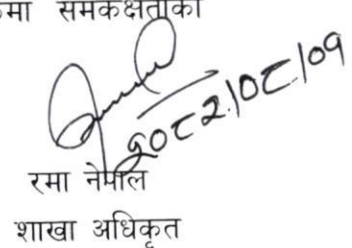 मा समकक्षताका
२०८२/०८/०१
रमा नेपाल
शाखा अधिकृत